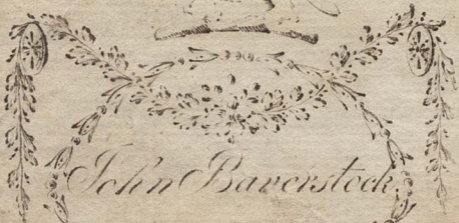 John Baverstock.